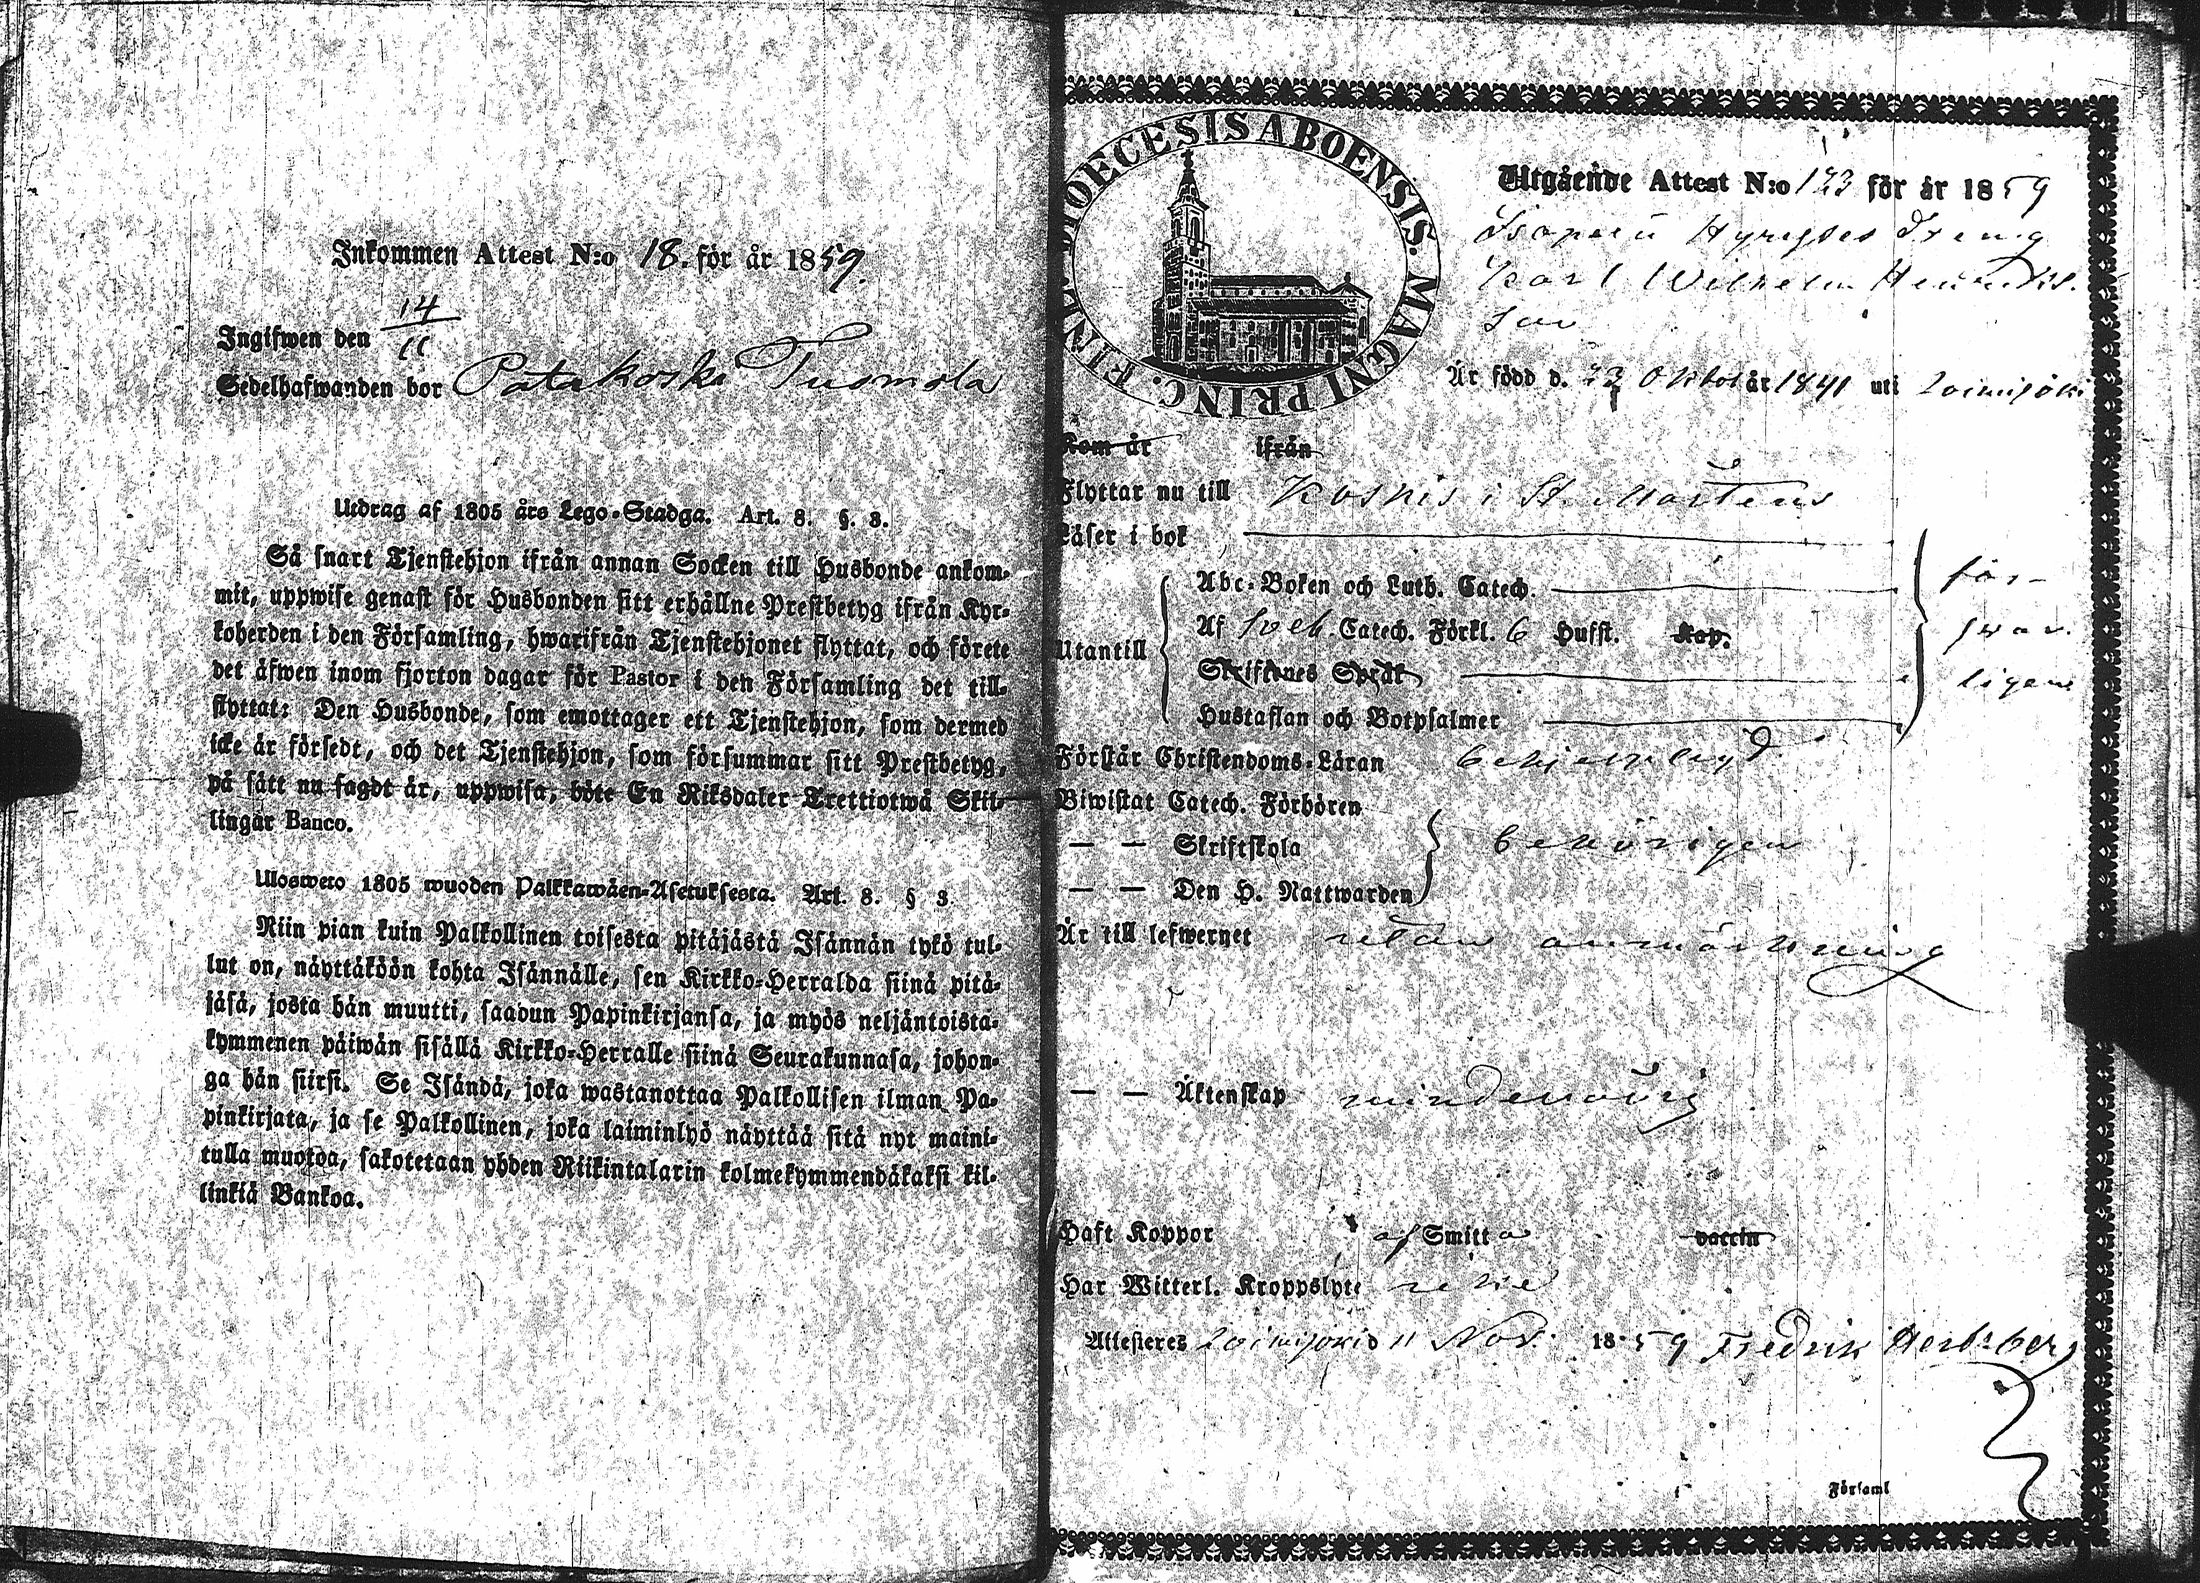 Inkommen Attest N:o 18. för år 1859.
Ingifwen den 14/11
Sedelhafwanden bor Patakoski Tuomola
Utdrag af 1805 års Lego-Stadga. Art. 8. §. 3.
Så snart Tjenstehjon ifrån annan Socken till Husbonde ankom-
mit, uppwise genast för Husbonden sitt erhållne Prestbetyg ifrån Kyr-
koherden i den Församling, hwarifrån Tjenstehjonet flyttat, och förete
det äfwen inom fjorton dagar för Pastor i den Församling det till-
flyttat: Den Husbonde, som emottager ett Tjenstehjon, som dermed
icke är försedt, och det Tjenstehjon, som försummar sitt Prestbetyg,
på sätt nu sagdt är, uppwisa, böte En Riksdaler Trettiotwå Skil-
lingar Banco.
Ulosweto 1805 wuoden Palkkawäen-Asetuksesta. Art. 8. § 3.
Niin pian kuin Palkollinen toisesta pitäjästä Isännän tykö tul-
lut on, näyttäköön kohta Isännälle, sen Kirkko-Herralda siinä pitä-
jäsä, josta hän muutti, saadun Papinkirjansa, ja myös neljäntoista-
kymmenen päiwän sisällä Kirkko-Herralle siinä Seurakunnasa, johon-
ga hän siirsi. Se Isändä, joka wastanottaa Palkollisen ilman Pa-
pinkirjata, ja se Palkollinen, joka laiminlyö näyttää sitä nyt maini-
tulla muotoa, sakotetaan yhden Riikintalarin kolmekymmendäkaksi kil-
linkiä Bankoa.
DIOECESIS ABOENSIS. MAGNI PRINC. FINL.
Utgående Attest N:o 123 för år 1859
Isoperä Hyrysses Dreng
Karl Wilhelm Henriks-
son
Är född d. 23 Oktob år 1841 uti Loimijoki
Kom år ifrån
Flyttar nu till Koskis i St. Mårtens
Läser i bok
Utantill
Abc-Boken och Luth. Catech.
Af Sveb. Catech. Förkl. 6 Hufst. Kap.
Skriftenes Språk
Hustaflan och Botpsalmer
för-
svar-
ligen
Förstår Christendoms-Läran behjelpligt
Biwistat Catech. Förhören
— — Skriftskola behörigen
— — Den H. Nattwarden
Är till lefwernet utan anmärkning
— — Äktenskap hinderlös
Haft Koppor af Smitta vaccin
Har Witterl. Kroppslyte icke
Attesteres Loimijoki d 11 Nov. 1859 Fredrik
Församl